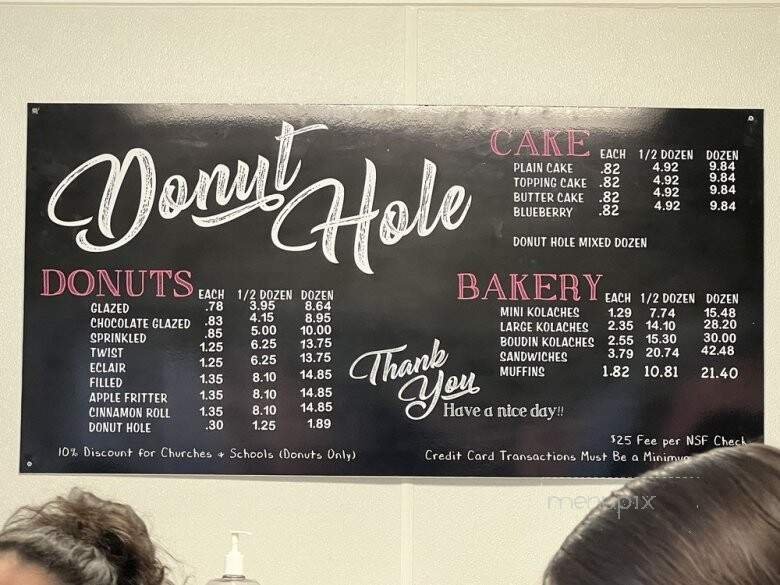 Donut Hole
DONUTS EACH 1/2 DOZEN DOZEN
GLAZED .78 3.95 8.64
CHOCOLATE GLAZED .83 4.15 8.95
SPRINKLED .85 5.00 10.00
TWIST 1.25 6.25 13.75
ECLAIR 1.25 6.25 13.75
FILLED 1.35 8.10 14.85
APPLE FRITTER 1.35 8.10 14.85
CINNAMON ROLL 1.35 8.10 14.85
DONUT HOLE .30 1.25 1.89
10% Discount for Churches + Schools (Donuts Only)
CAKE EACH 1/2 DOZEN DOZEN
PLAIN CAKE .82 4.92 9.84
TOPPING CAKE .82 4.92 9.84
BUTTER CAKE .82 4.92 9.84
BLUEBERRY .82 4.92 9.84
DONUT HOLE MIXED DOZEN
BAKERY EACH 1/2 DOZEN DOZEN
MINI KOLACHES 1.29 7.74 15.48
LARGE KOLACHES 2.35 14.10 28.20
BOUDIN KOLACHES 2.55 15.30 30.00
SANDWICHES 3.79 20.74 42.48
MUFFINS 1.82 10.81 21.40
Thank You
Have a nice day!!
$25 Fee per NSF Check
Credit Card Transactions Must Be a
menupix